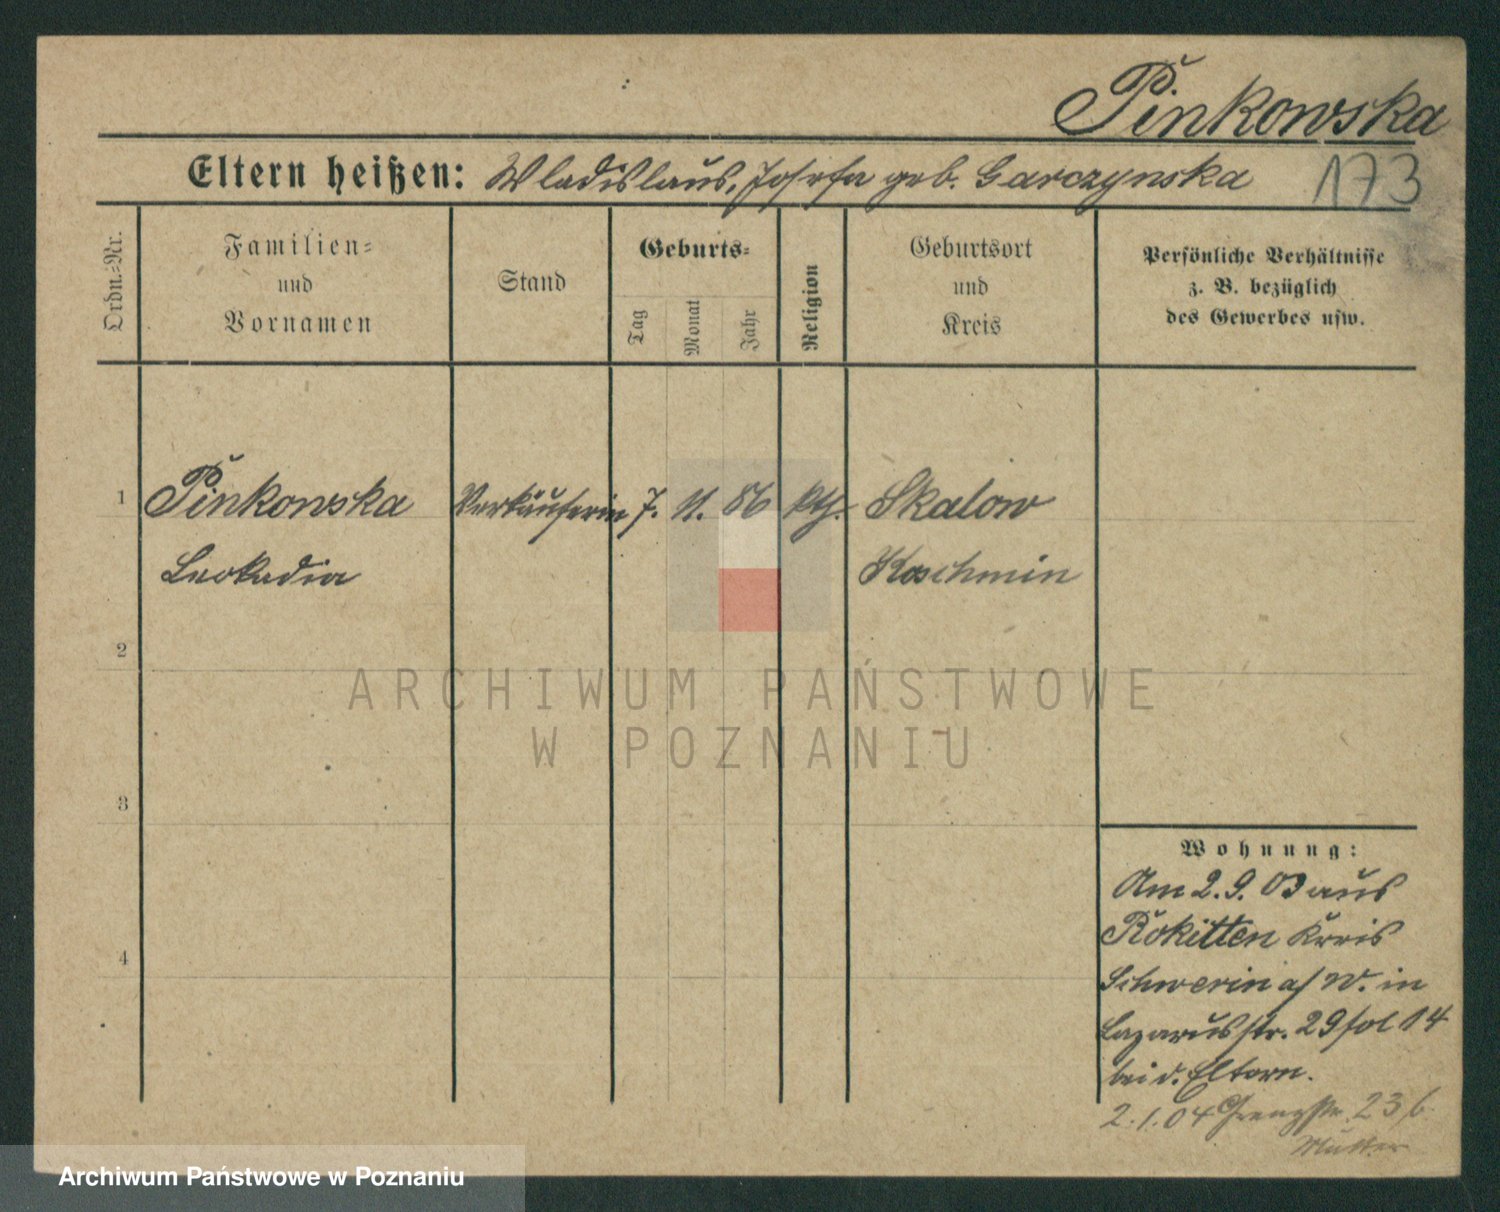 Pinkowska
Eltern heißen: Wladislaus, Josefa geb. Garczynska 173
Ordn.=Nr.
Familien=
und
Vornamen
Stand
Geburts=
Tag
Monat
Jahr
Religion
Geburtsort
und
Kreis
Persönliche Verhältnisse
z. B. bezüglich
des Gewerbes usw.
1 Pinkowska Verkäuferin 7. 11. 86 kth. Skalow
Leokadia Koschmin
2
3
4
ARCHIWUM PAŃSTWOWE
W POZNANIU
Wohnung:
Am 2.9.03 aus
Rokitten Kreis
Schwerin a/W. in
Lazarusstr. 29 fol 14
bei d. Eltern.
2.1.04 Grenzstr. 23 b.
Mutter
Archiwum Państwowe w Poznaniu